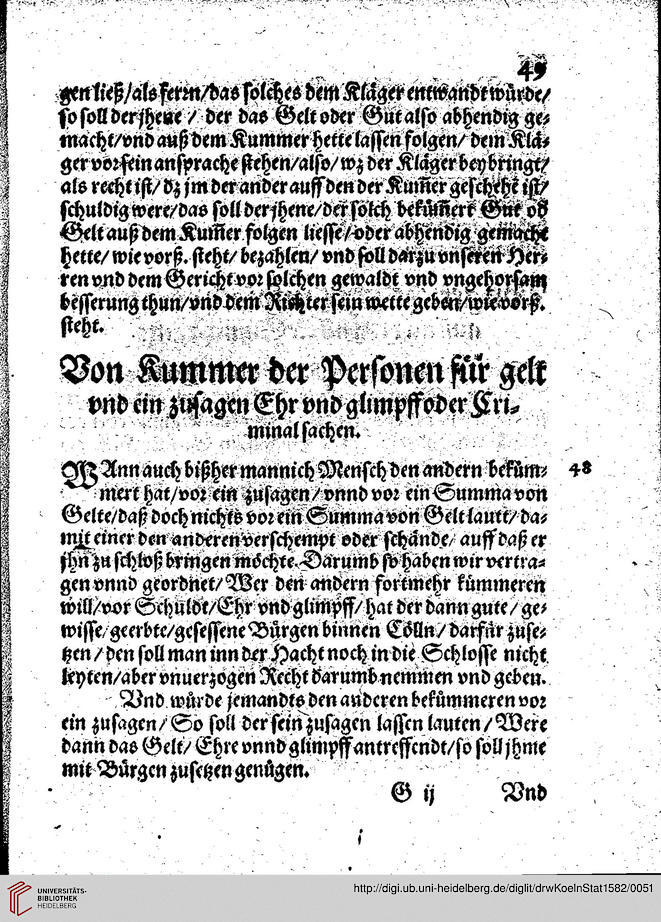 49
gen ließ/als ferrn/das solches dem Kläger entwandt würde/
so soll der jhene / der das Gelt oder Gut also abhendig ge⸗
macht/vnd auß dem Kummer hette lassen folgen/ dem Klä⸗
ger vor sein ansprache stehen/also/ wz der Kläger beybringt/
als recht ist/ dz jm der ander auff den der Kum̃er geschehẽ ist/
schuldig were/das soll der jhene/der solch beküm̃ert Gut oď
Gelt auß dem Kum̃er folgen liesse/oder abhendig gemacht
hette/ wie vorß. steht/ bezahlen/ vnd soll darzu vnseren Her⸗
ren vnd dem Gericht vor solchen gewaldt vnd vngehorsam
besserung thun/vnd dem Richter sein wette geben/wie vorß.
steht.
Von Kummer der Personen für gelt
vnd ein zusagen Ehr vnd glimpff oder Cri⸗
minal sachen.
WAnn auch bißher mannich Mensch den andern beküm⸗ 48
mert hat/vor ein zusagen/ vnnd vor ein Summa von
Gelte/daß doch nichts vor ein Summa von Gelt lautt/ da⸗
mit einer den anderen verschempt oder schände/ auff daß er
jhn zu schloß bringen möchte. Darumb so haben wir vertra⸗
gen vnnd geordnet/ Wer den andern fortmehr kümmeren
will/vor Schuldt/Ehr vnd glimpff/ hat der dann gute/ ge⸗
wisse/geerbte/gesessene Bürgen binnen Cölln/ darfür zuse⸗
tzen/ den soll man inn der Hacht noch in die Schlosse nicht
leyten/aber vnuerzogen Recht darumb nemmen vnd geben.
Vnd würde jemandts den anderen bekümmeren vor
ein zusagen/ So soll der sein zusagen lassen lauten/ Were
dann das Gelt/ Ehre vnnd glimpff antreffendt/so soll jhme
mit Bürgen zusetzen genügen.
G ij Vnd
UNIVERSITÄTS-
BIBLIOTHEK
HEIDELBERG
http://digi.ub.uni-heidelberg.de/diglit/drwKoelnStat1582/0051